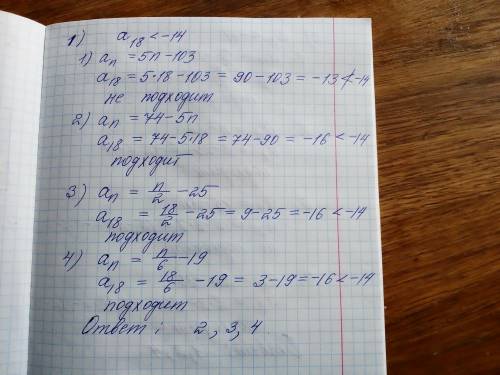 1) a₁₈ < -14
1) aₙ = 5n - 103
a₁₈ = 5·18 - 103 = 90 - 103 = -13 ≮ -14
не подходит
2) aₙ = 74 - 5n
a₁₈ = 74 - 5·18 = 74 - 90 = -16 < -14
подходит
3) aₙ = n/2 - 25
a₁₈ = 18/2 - 25 = 9 - 25 = -16 < -14
подходит
4) aₙ = n/6 - 19
a₁₈ = 18/6 - 19 = 3 - 19 = -16 < -14
подходит
Ответ: 2, 3, 4